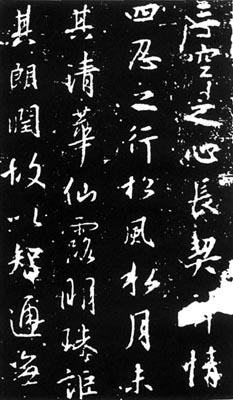 三空之心長契神情
四忍之行松風水月未
其清華仙露明珠詎
其朗潤故以智通無